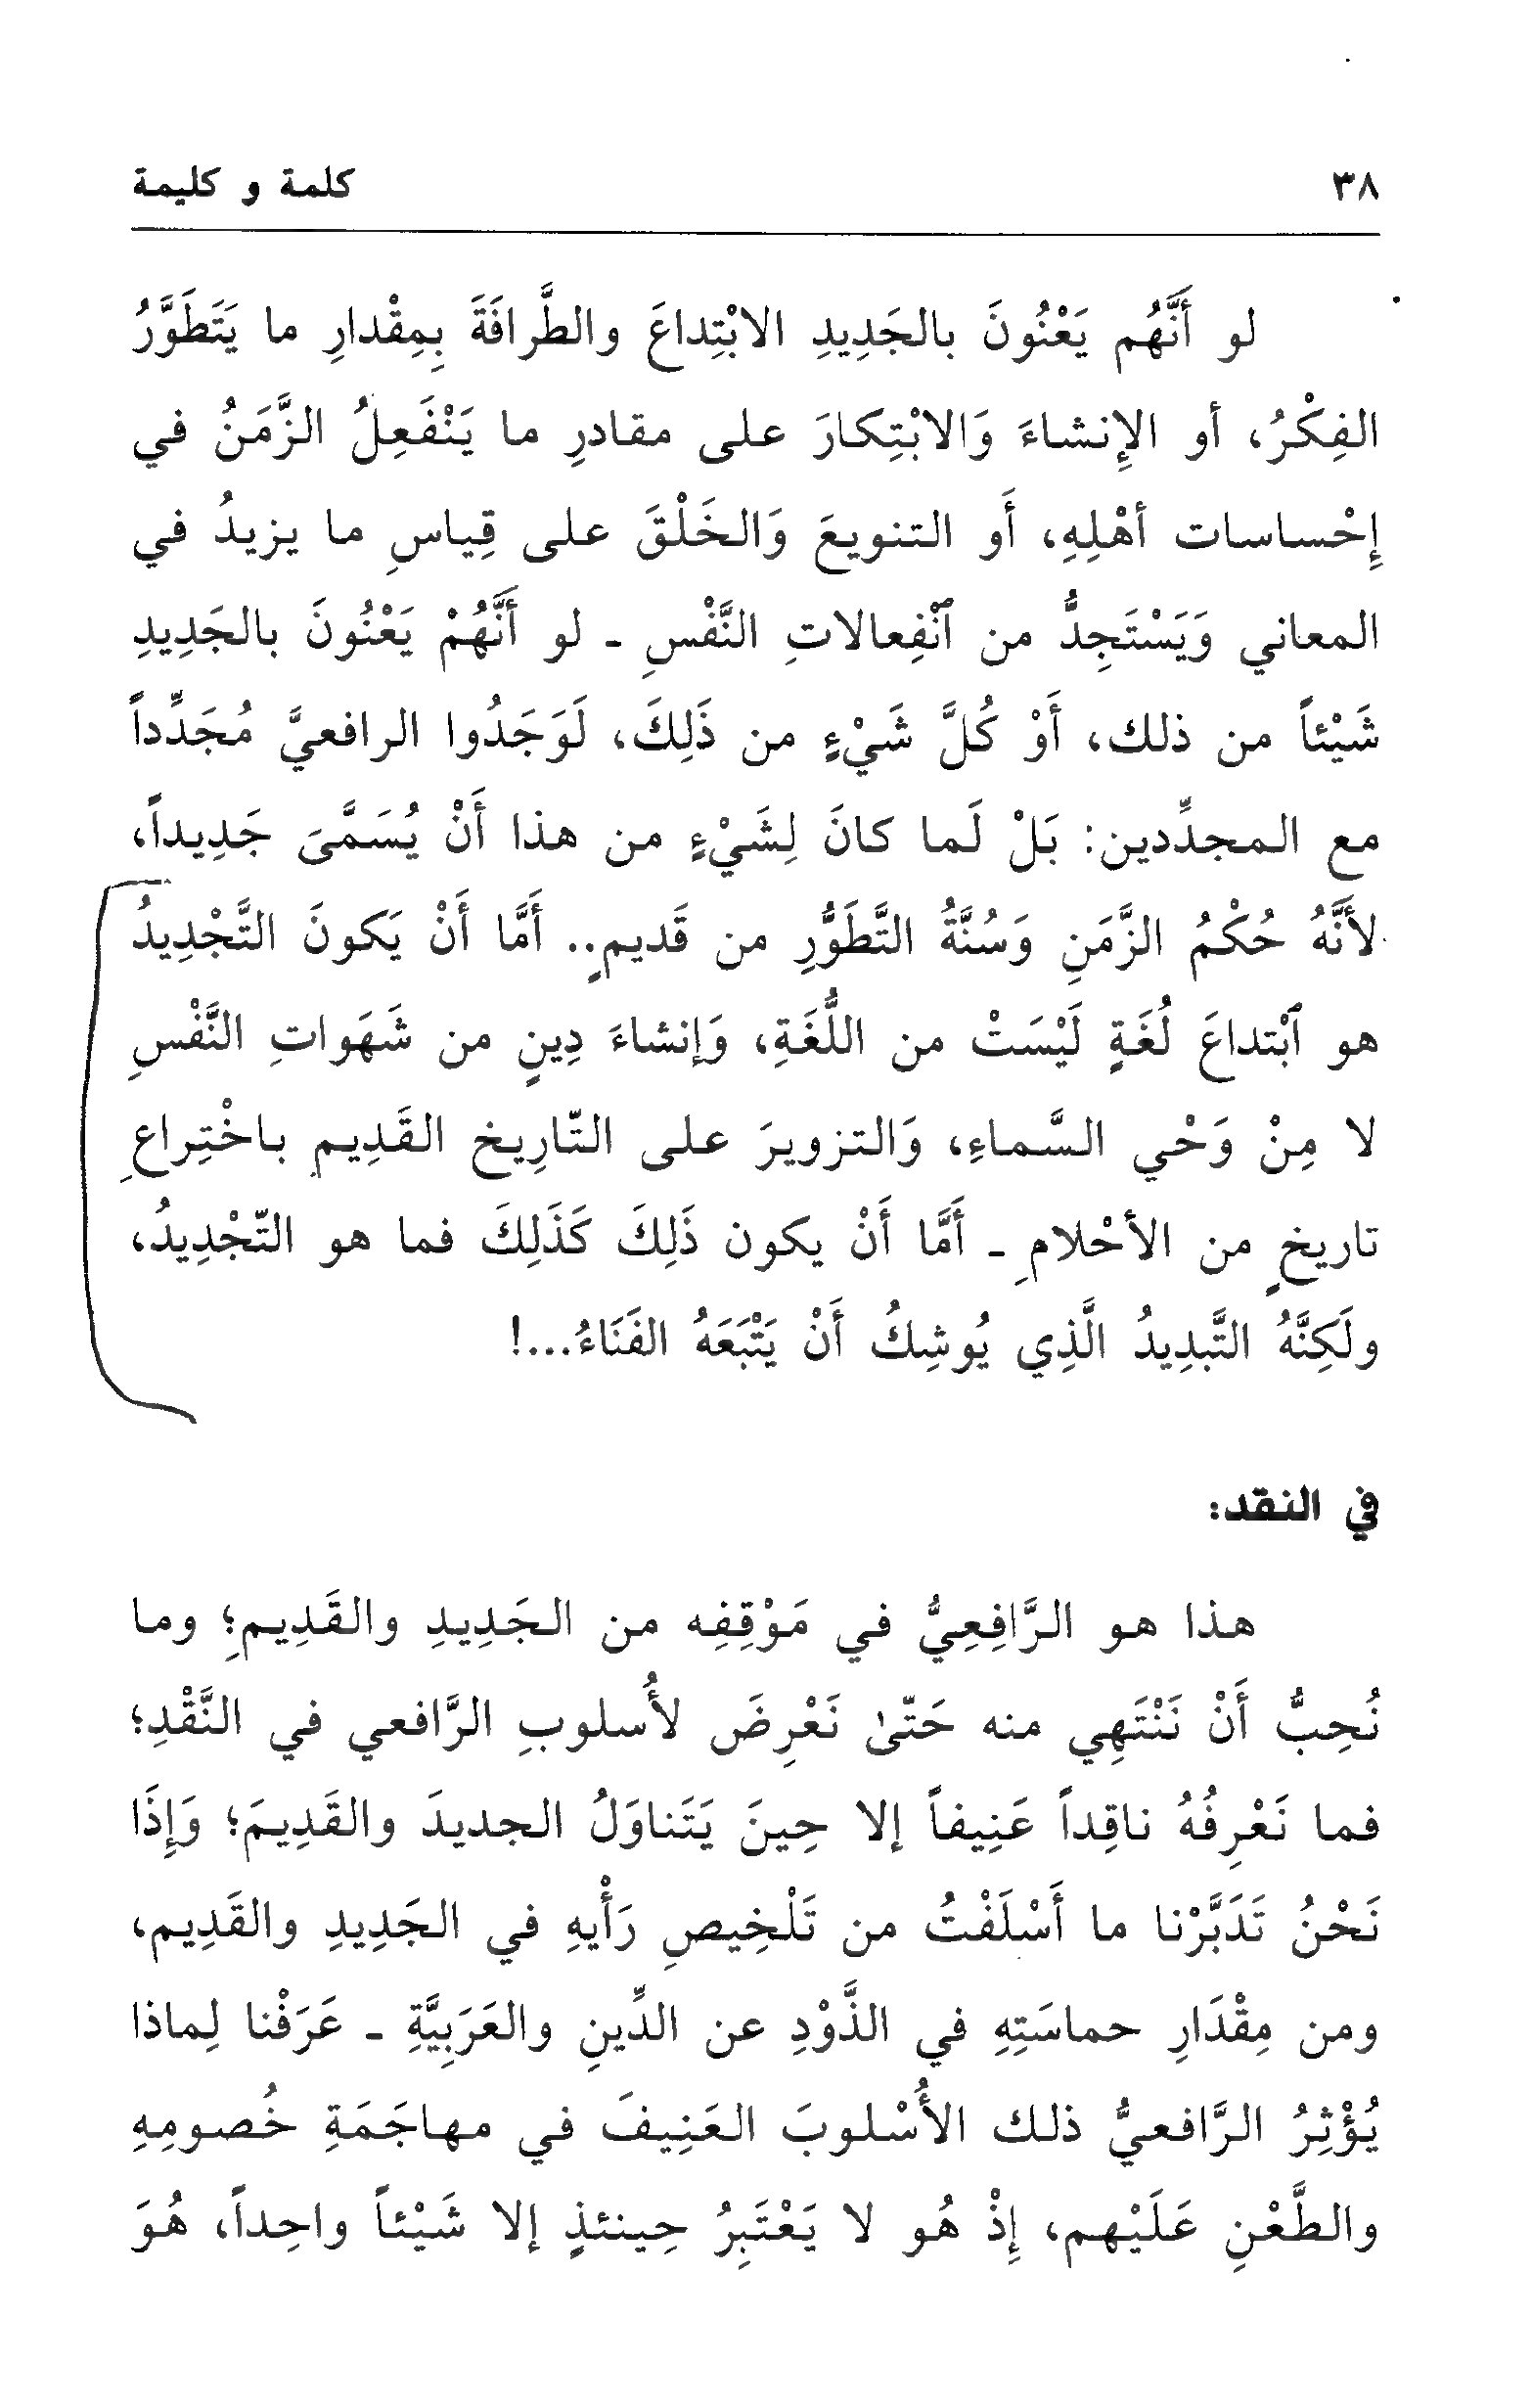 ٣٨ كلمة و كليمة
لو أَنَّهُم يَعْنُونَ بالجَدِيدِ الابْتِداعَ والطَّرافَةَ بِمِقْدارِ ما يَتَطَوَّرُ
الفِكْرُ، أو الإِنشاءَ وَالابْتِكارَ على مقادرِ ما يَنْفَعِلُ الزَّمَنُ في
إِحْساسات أهْلِهِ، أَو التنويعَ وَالخَلْقَ على قِياسِ ما يزيدُ في
المعاني وَيَسْتَجِدُّ من ٱنْفِعالاتِ النَّفْسِ ـ لو أَنَّهُمْ يَعْنُونَ بالجَدِيدِ
شَيْئاً من ذلك، أَوْ كُلَّ شَيْءٍ من ذَلِكَ، لَوَجَدُوا الرافعيَّ مُجَدِّداً
مع المجدِّدين: بَلْ لَما كانَ لِشَيْءٍ من هذا أَنْ يُسَمَّىَ جَدِيداً،
لأَنَّهُ حُكْمُ الزَّمَنِ وَسُنَّةُ التَّطَوُّرِ من قَديمٍ.. أَمَّا أَنْ يَكونَ التَّجْدِيدُ
هو ٱبْتداعَ لُغَةٍ لَيْسَتْ من اللُّغَةِ، وَإنشاءَ دِينٍ من شَهَواتِ النَّفْسِ
لا مِنْ وَحْي السَّماءِ، وَالتزويرَ على التّارِيخ القَدِيم باخْتِراعِ
تاريخٍ من الأحْلامِ ـ أَمَّا أَنْ يكون ذَلِكَ كَذَلِكَ فما هو التّجْدِيدُ،
ولَكِنَّهُ التَّبدِيدُ الَّذِي يُوشِكُ أَنْ يَتْبَعَهُ الفَنَاءُ...!
في النقد:
هذا هو الرَّافِعِيُّ في مَوْقِفِه من الجَدِيدِ والقَدِيمِ؛ وما
نُحِبُّ أَنْ نَنْتَهِي منه حَتّىٰ نَعْرِضَ لأُسلوبِ الرَّافعي في النَّقْدِ؛
فما نَعْرِفُهُ ناقِداً عَنِيفاً إلا حِينَ يَتَناوَلُ الجديدَ والقَدِيمَ؛ وَإِذَا
نَحْنُ تَدَبَّرْنا ما أَسْلَفْتُ من تَلْخِيصِ رَأْيهِ في الجَدِيدِ والقَدِيم،
ومن مِقْدَارِ حماسَتِهِ في الذَّوْدِ عن الدِّينِ والعَرَبِيَّةِ ـ عَرَفْنا لِماذا
يُؤْثِرُ الرَّافعيُّ ذلك الأُسْلوبَ العَنِيفَ في مهاجَمَةِ خُصومِهِ
والطَّعْنِ عَلَيْهم، إِذْ هُو لا يَعْتَبِرُ حِينئذٍ إلا شَيْئاً واحِداً، هُوَ